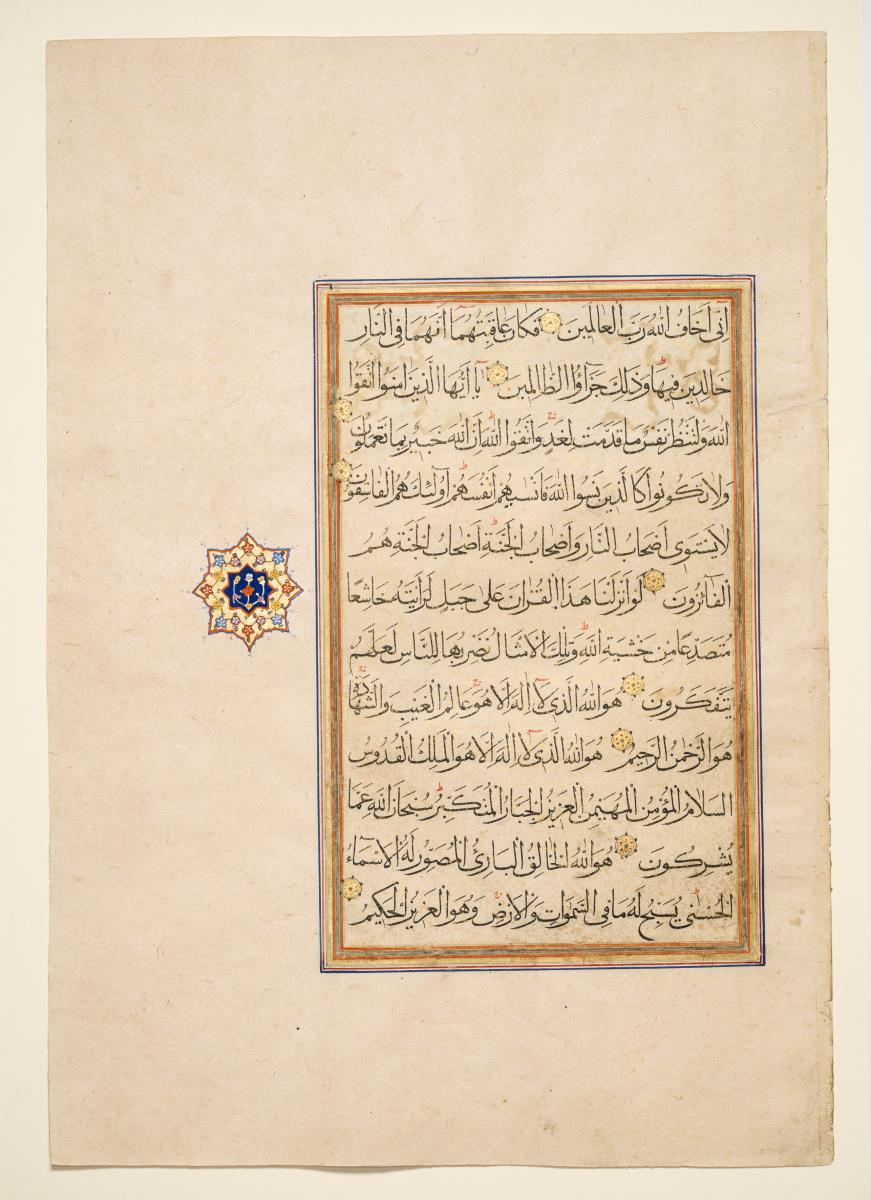 اِنّى اَخَافُ اللهَ رَبَّ الْعَالَمِينَ فَكَانَ عَاقِبَتَهُمَا اَنَّهُمَا فِى النَّارِ
خَالِدَيْنِ فِيهَا وَذٰلِكَ جَزَآؤُا الظَّالِمِينَ يَا اَيُّهَا الَّذِينَ اٰمَنُوا اتَّقُوا
اللهَ وَلْتَنْظُرْ نَفْسٌ مَا قَدَّمَتْ لِغَدٍ وَاتَّقُوا اللهَ اِنَّ اللهَ خَبِيرٌ بِمَا تَعْمَلُونَ
وَلَا تَكُونُوا كَالَّذِينَ نَسُوا اللهَ فَاَنْسٰيهُمْ اَنْفُسَهُمْ اُولٰٓئِكَ هُمُ الْفَاسِقُونَ
لَا يَسْتَوِى اَصْحَابُ النَّارِ وَاَصْحَابُ الْجَنَّةِ اَصْحَابُ الْجَنَّةِ هُمُ
الْفَآئِزُونَ لَوْ اَنْزَلْنَا هَذَا الْقُرْاٰنَ عَلٰى جَبَلٍ لَرَاَيْتَهُ خَاشِعًا
مُتَصَدِّعًا مِنْ خَشْيَةِ اللهِ وَتِلْكَ الْاَمْثَالُ نَضْرِبُهَا لِلنَّاسِ لَعَلَّهُمْ
يَتَفَكَّرُونَ هُوَ اللهُ الَّذِى لَآ اِلٰهَ اِلَّا هُوَ عَالِمُ الْغَيْبِ وَالشَّهَادَةِ
هُوَ الرَّحْمٰنُ الرَّحِيمُ هُوَ اللهُ الَّذِى لَآ اِلٰهَ اِلَّا هُوَ الْمَلِكُ الْقُدُّوسُ
السَّلَامُ الْمُؤْمِنُ الْمُهَيْمِنُ الْعَزِيزُ الْجَبَّارُ الْمُتَكَبِّرُ سُبْحَانَ اللهِ عَمَّا
يُشْرِكُونَ هُوَ اللهُ الْخَالِقُ الْبَارِئُ الْمُصَوِّرُ لَهُ الْاَسْمَآءُ
الْحُسْنٰى يُسَبِّحُ لَهُ مَا فِى السَّمٰوَاتِ وَالْاَرْضِ وَهُوَ الْعَزِيزُ الْحَكِيمُ